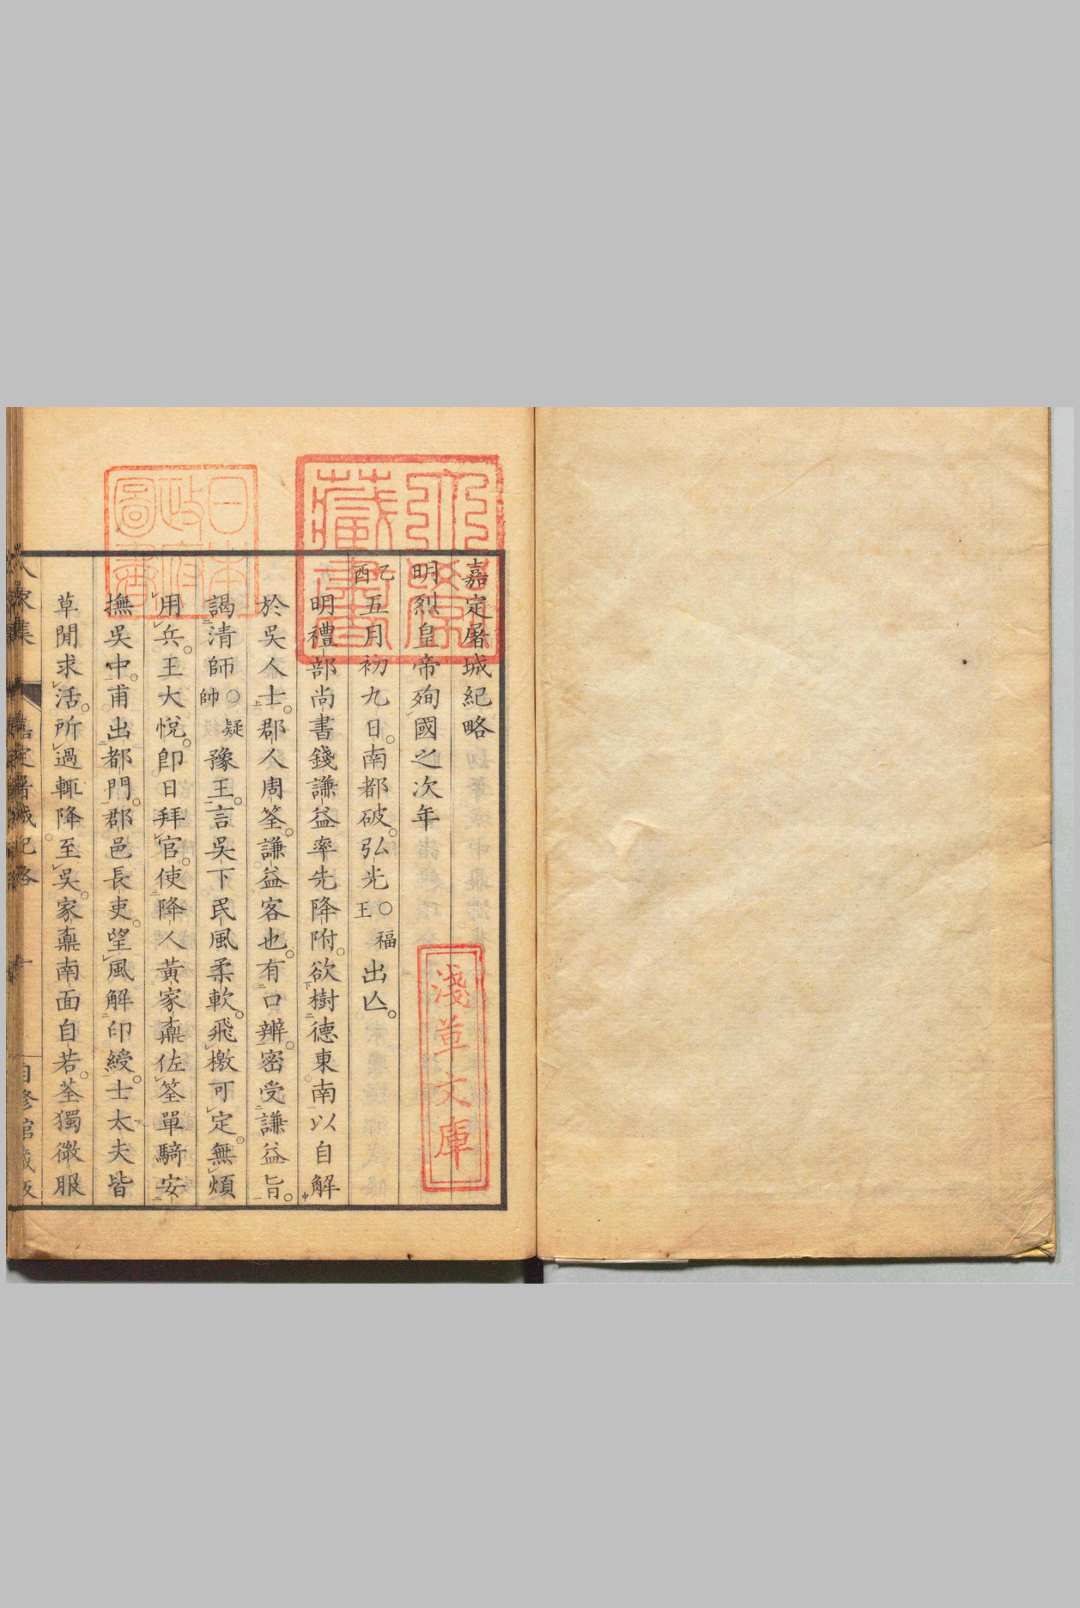 嘉定屠城紀略
明烈皇帝殉國之次年
乙酉五月初九日。南都破。弘光○福王出亾。
明禮部尚書錢謙益率先降附。欲樹德東南以自解
於吳人士。郡人周筌。謙益客也。有口辨。密受謙益旨。
謁清師○疑帥豫王。言吳下民風柔軟。飛檄可定。無煩
用兵。王大悅。卽日拜官。使降人黃家鼒佐筌單騎安
撫吳中。甫出都門。郡邑長吏。望風解印綬。士太夫皆
草閒求活。所過輒降。至吳。家鼒南面自若。筌獨微服
嘉定屠城紀略
一
日本政府圖書
藏書
淺草文庫